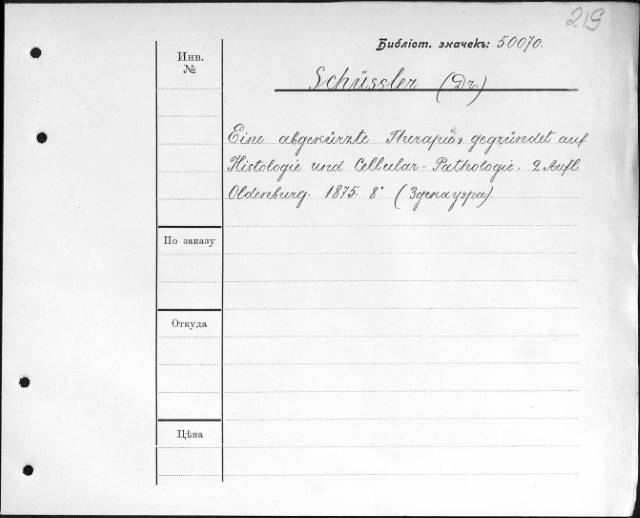 219
Библіот. значекъ: 50070.
Инв.
№
Schüssler (Dr.)
Eine abgekürzte Therapie, gegründet auf
Histologie und Cellular-Pathologie. 2 Aufl
Oldenburg. 1875. 8° (Здекауэра).
По заказу
Откуда
Цѣна